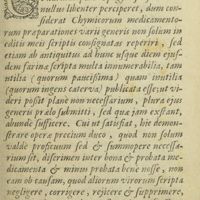 nullus libenter perciperet, dum con-
siderat Chymicorum medicamento-
rum præparationes varii generis non solum in
editis meis scriptis consignatas reperiri, sed
etiam ab antiquitus ad hunc usque diem ejus-
dem farinæ scripta multa innumerabilia, tam
utilia (quorum paucissima) quam inutilia
(quorum ingens caterva) publicata esse; ut vi-
deri possit planè non necessarium, plura ejus
generis prælo submitti, sed quæ jam exstant,
abundè sufficere. Cui ut satisfiat, hic demon-
strare operæ precium duco, quod non solum
valdè proficuum sed & summopere necessa-
rium sit, discrimen inter bona & probata me-
dicamenta & minus probata benè nosse, non
eam ob causam, quod aliorum virorum scripta
negligere, corrigere, rejicere & supprimere,